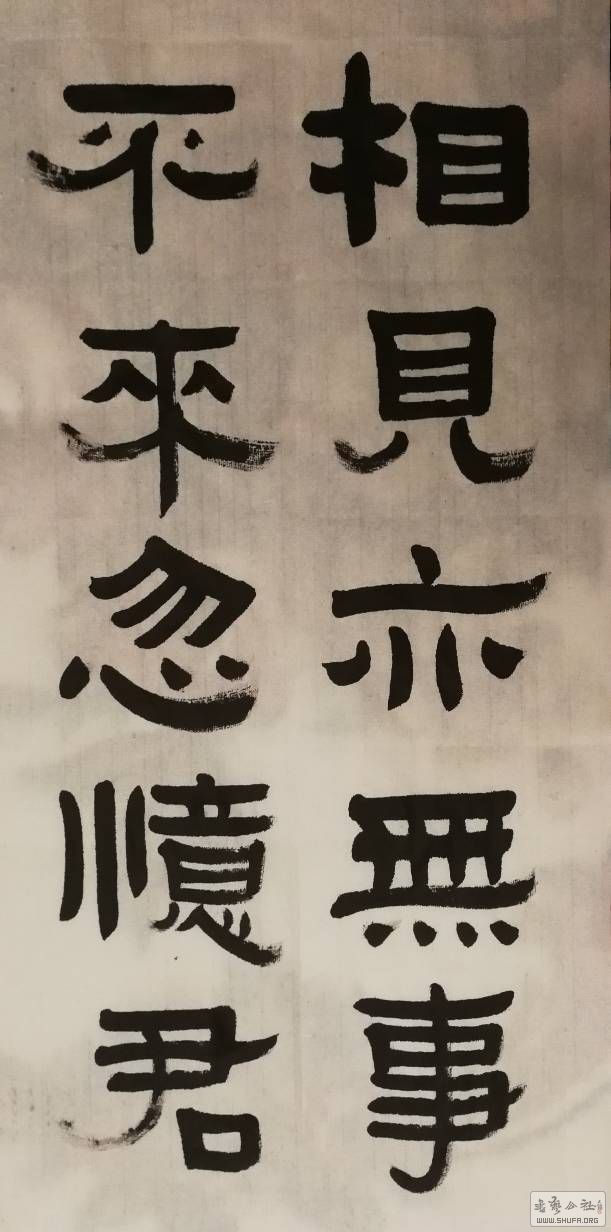 相見亦無事
不來忽憶君
WWW.SHUFA.ORG